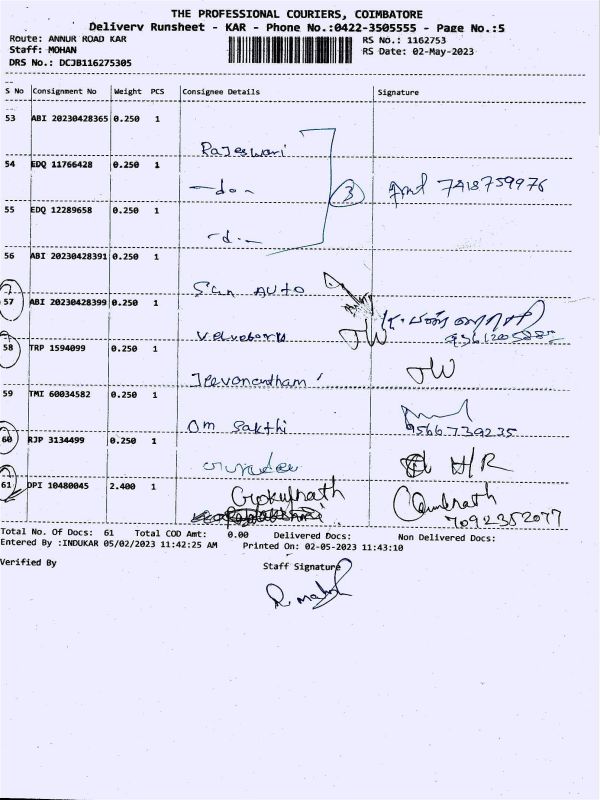 THE PROFESSIONAL COURIERS, COIMBATORE
Delivery Runsheet - KAR - Phone No.:0422-3505555 - Page No.:5
Route: ANNUR ROAD KAR RS No.: 1162753
Staff: MOHAN RS Date: 02-May-2023
DRS No.: DCJB116275305
S No Consignment No Weight PCS Consignee Details Signature
53 ABI 20230428365 0.250 1
Rajeswari
54 EDQ 11766428 0.250 1
-do- 3 7418759976
55 EDQ 12289658 0.250 1
-d.-
56 ABI 20230428391 0.250 1
Sun AUTO
57 ABI 20230428399 0.250 1
58 TRP 1594099 0.250 1
Jeevanandham
59 TMI 60034582 0.250 1
Om Sakthi 9566739235
60 RJP 3134499 0.250 1
H/R
61 DPI 10480045 2.400 1
Gokulnath
7092352077
Total No. Of Docs: 61 Total COD Amt: 0.00 Delivered Docs: Non Delivered Docs:
Entered By :INDUKAR 05/02/2023 11:42:25 AM Printed On: 02-05-2023 11:43:10
Verified By Staff Signature